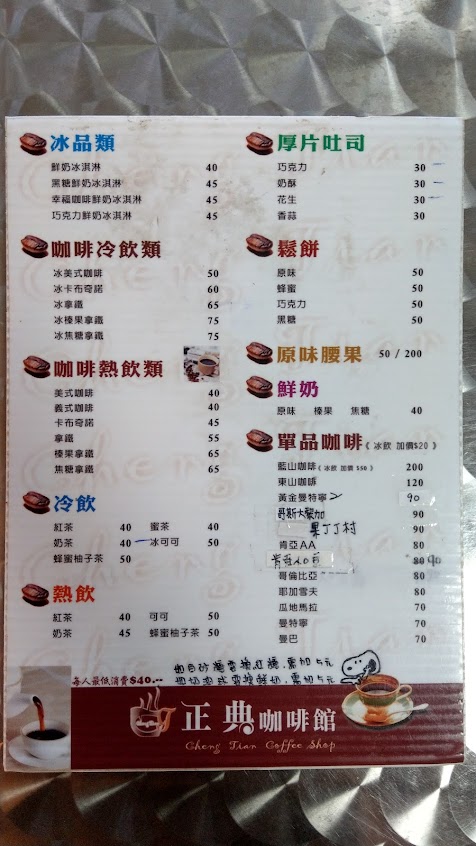 冰品類
鮮奶冰淇淋 40
黑糖鮮奶冰淇淋 45
幸福咖啡鮮奶冰淇淋 45
巧克力鮮奶冰淇淋 45
咖啡冷飲類
冰美式咖啡 50
冰卡布奇諾 60
冰拿鐵 65
冰榛果拿鐵 75
冰焦糖拿鐵 75
咖啡熱飲類
美式咖啡 40
義式咖啡 40
卡布奇諾 45
拿鐵 55
榛果拿鐵 65
焦糖拿鐵 65
冷飲
紅茶 40 蜜茶 40
奶茶 40 冰可可 50
蜂蜜柚子茶 50
熱飲
紅茶 40 可可 50
奶茶 45 蜂蜜柚子茶 50
厚片吐司
巧克力 30
奶酥 30
花生 30
香蒜 30
鬆餅
原味 50
蜂蜜 50
巧克力 50
黑糖 50
原味腰果 50 / 200
鮮奶
原味 榛果 焦糖 40
單品咖啡《冰飲 加價$20》
藍山咖啡《冰飲 加價 $50》 200
東山咖啡 120
黃金曼特寧 90
哥斯大黎加 90
果丁丁村 90
肯亞AA 80
80 90
哥倫比亞 80
耶加雪夫 80
瓜地馬拉 70
曼特寧 70
曼巴 70
如自砂糖要換紅糖.需加5元
需加5元
每人最低消費$40.--
正典咖啡館
Cheng Tian Coffee Shop